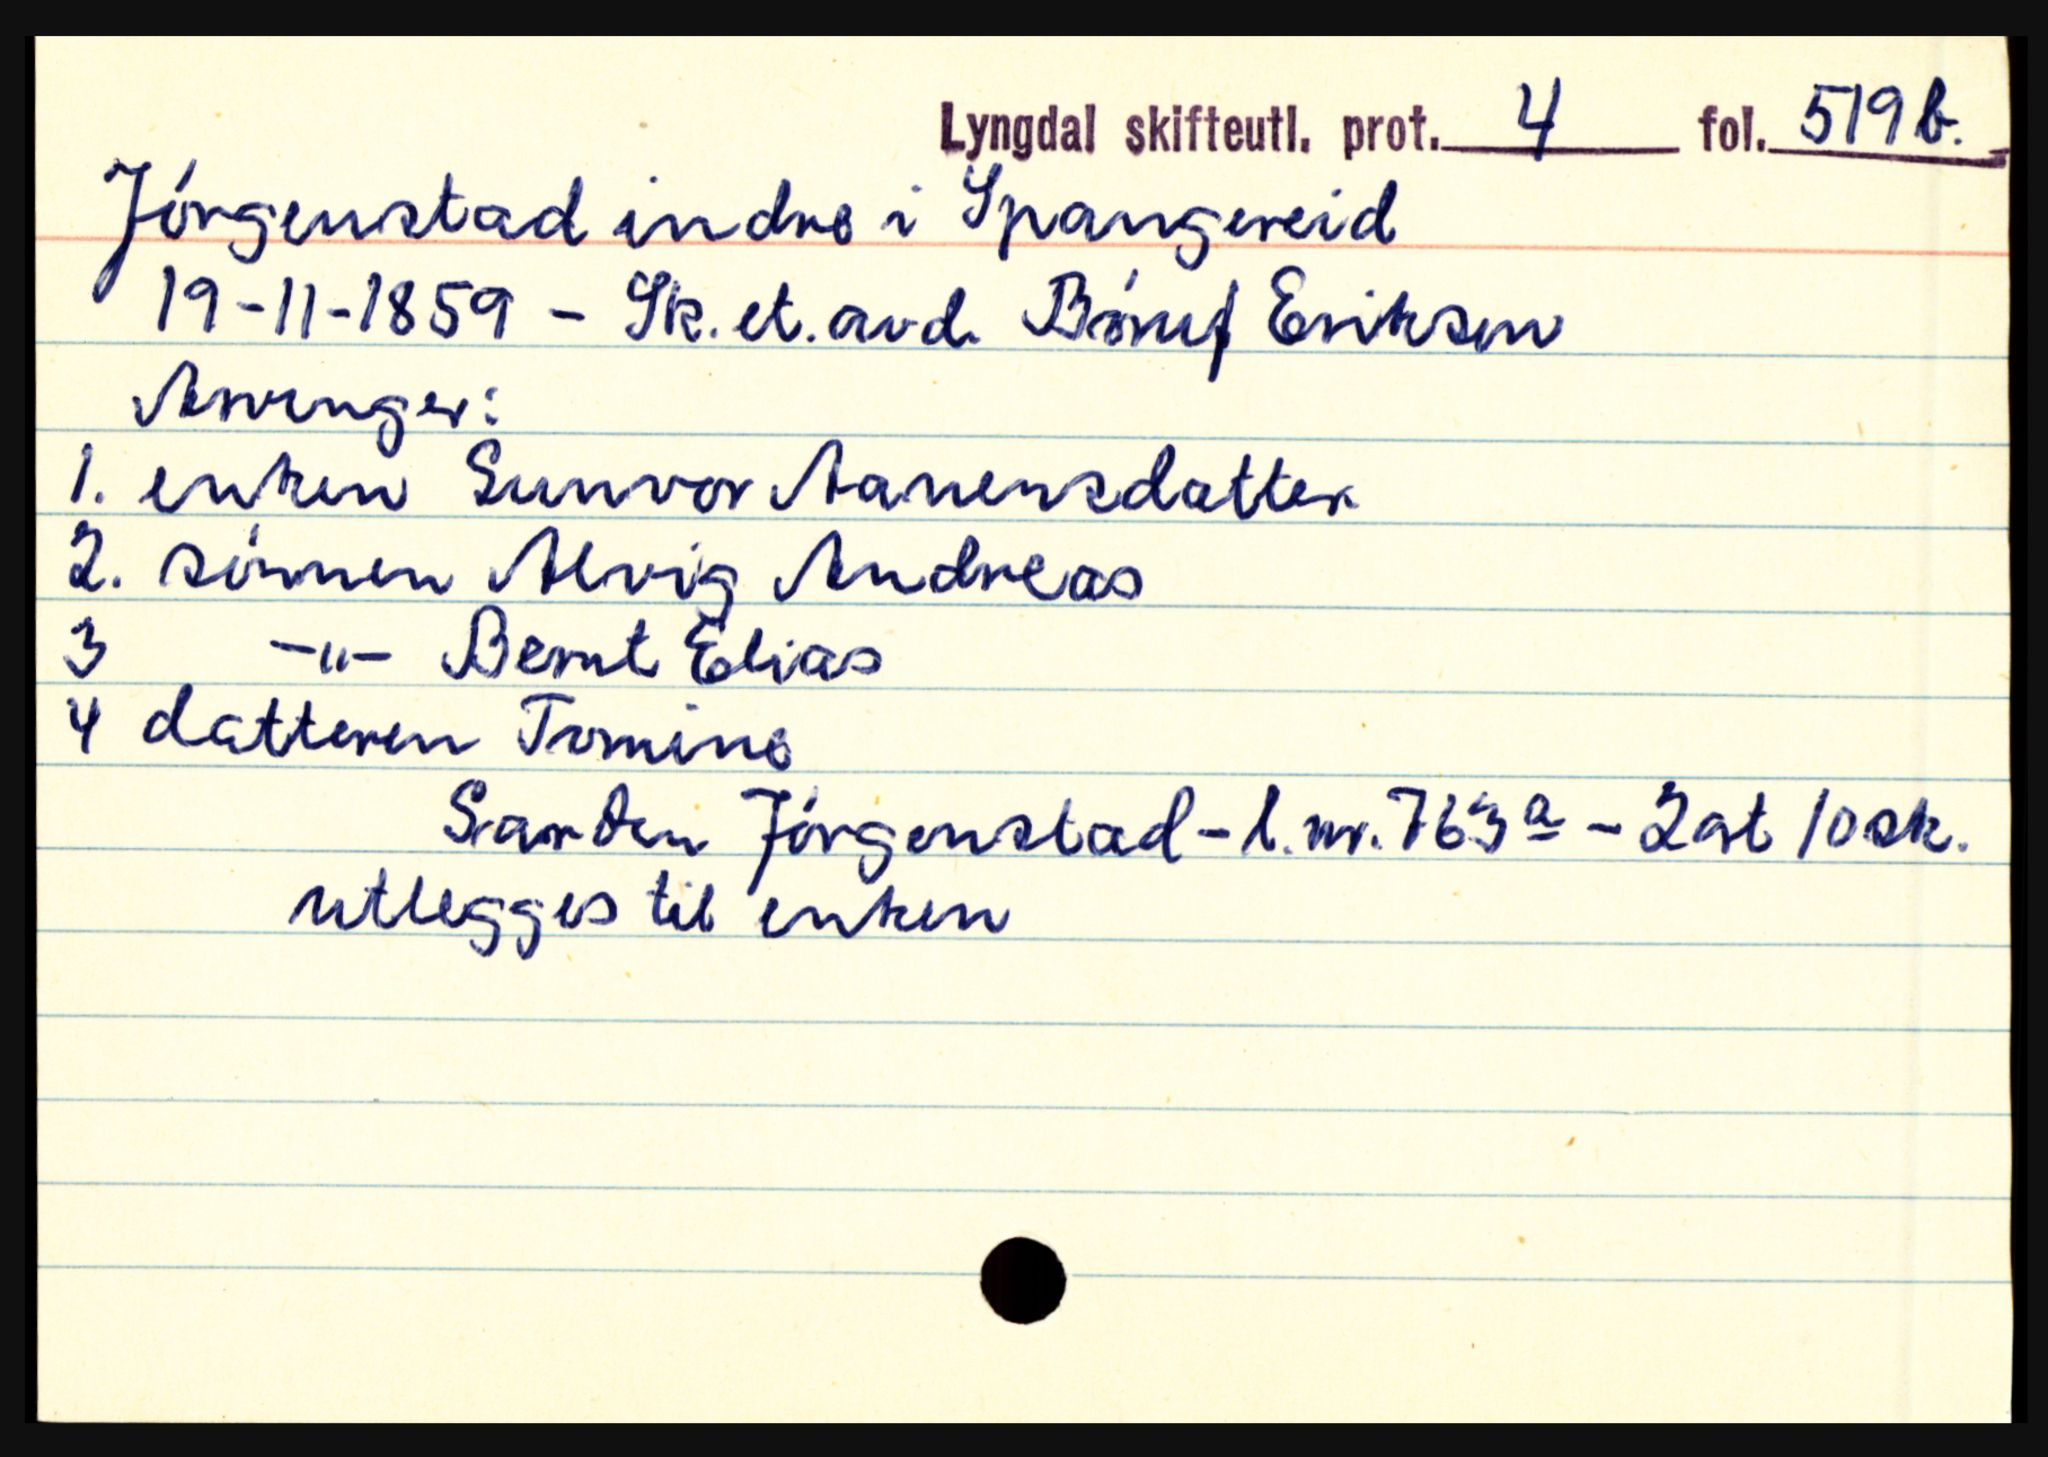 Lyngdal skifteutl. prot. 4 fol. 519 b.
Jórgenstad indre i Spangereid
19-11-1859 - Sk. et. avd. Bóruf Eriksen
Arvinger:
1. enken Sunvor Aanensdatter
2. sónnen Alvig Andreas
3 -"- Bernt Elias
4 datteren Tomine
Garden Jórgenstad - l. nr. 763ª - 2 ort 10 sk.
utlegges til enken